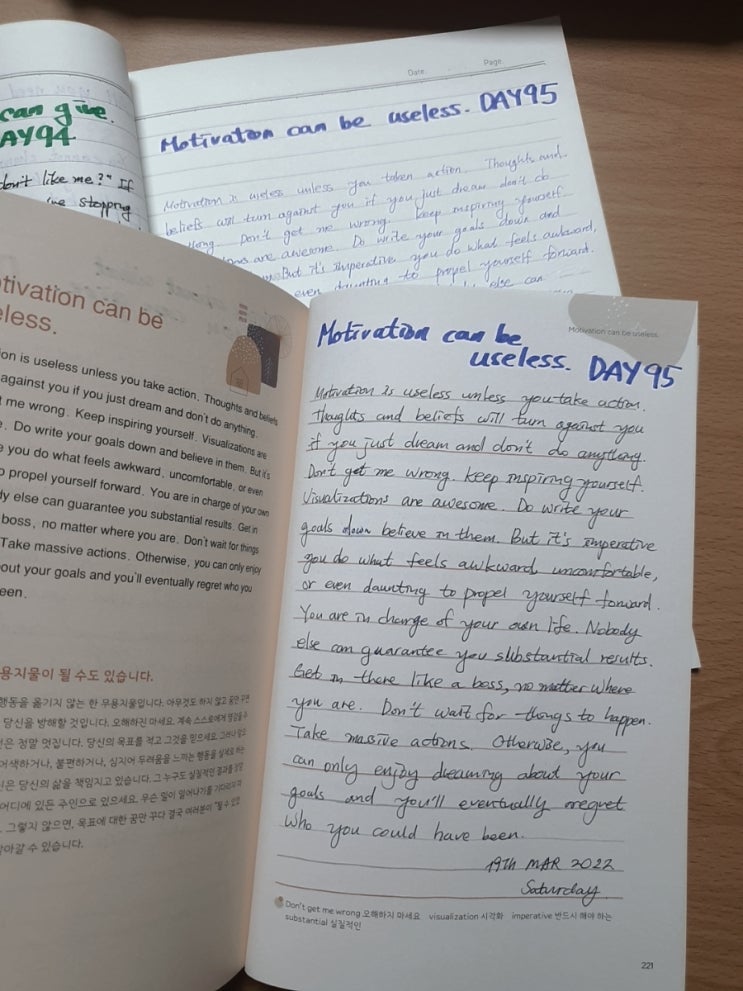 Date.
Page.
can give.
AY94
don't like me?" If
stopping
Motivation can be useless. DAY95
Motivation is useless unless you taken action. Thoughts and
beliefs will turn against you if you just dream don't do
Don't get me wrong. Keep inspiring yourself.
are awesome. Do write your goals down and
But it's imperative you do what feels awkward,
even daunting to propel yourself forward.
else can
tivation can be
eless.
on is useless unless you take action. Thoughts and beliefs
against you if you just dream and don't do anything.
t me wrong. Keep inspiring yourself. Visualizations are
e. Do write your goals down and believe in them. But it's
e you do what feels awkward, uncomfortable, or even
o propel yourself forward. You are in charge of your own
dy else can guarantee you substantial results. Get in
boss, no matter where you are. Don't wait for things
Take massive actions. Otherwise, you can only enjoy
out your goals and you'll eventually regret who you
een.
용지물이 될 수도 있습니다.
행동을 옮기지 않는 한 무용지물입니다. 아무것도 하지 않고 꿈만 꾸면
당신을 방해할 것입니다. 오해하진 마세요. 계속 스스로에게 영감을
것은 정말 멋집니다. 당신의 목표를 적고 그것을 믿으세요. 그러나
어색하거나, 불편하거나, 심지어 두려움을 느끼는 행동을 실제로 하는
신은 당신의 삶을 책임지고 있습니다. 그 누구도 실질적인 결과를
어디에 있든 주인으로 있으세요. 무슨 일이 일어나기를 기다리지
그렇지 않으면, 목표에 대한 꿈만 꾸다 결국 여러분이
아갈 수 있습니다.
Motivation can be useless.
Motivation can be
useless. DAY95
Motivation is useless unless you take action.
Thoughts and beliefs will turn against you
if you just dream and don't do anything.
Don't get me wrong. Keep inspiring yourself.
Visualizations are awesome. Do write your
goals down believe in them. But it's imperative
you do what feels awkward, uncomfortable,
or even daunting to propel yourself forward.
You are in charge of your own life. Nobody
else can guarantee you substantial results.
Get in there like a boss, no matter where
you are. Don't wait for things to happen.
Take massive actions. Otherwise, you
can only enjoy dreaming about your
goals and you'll eventually regret
who you could have been.
19TH MAR 2022
Saturday
Don't get me wrong 오해하지 마세요 visualization 시각화 imperative 반드시 해야 하는
substantial 실질적인
221